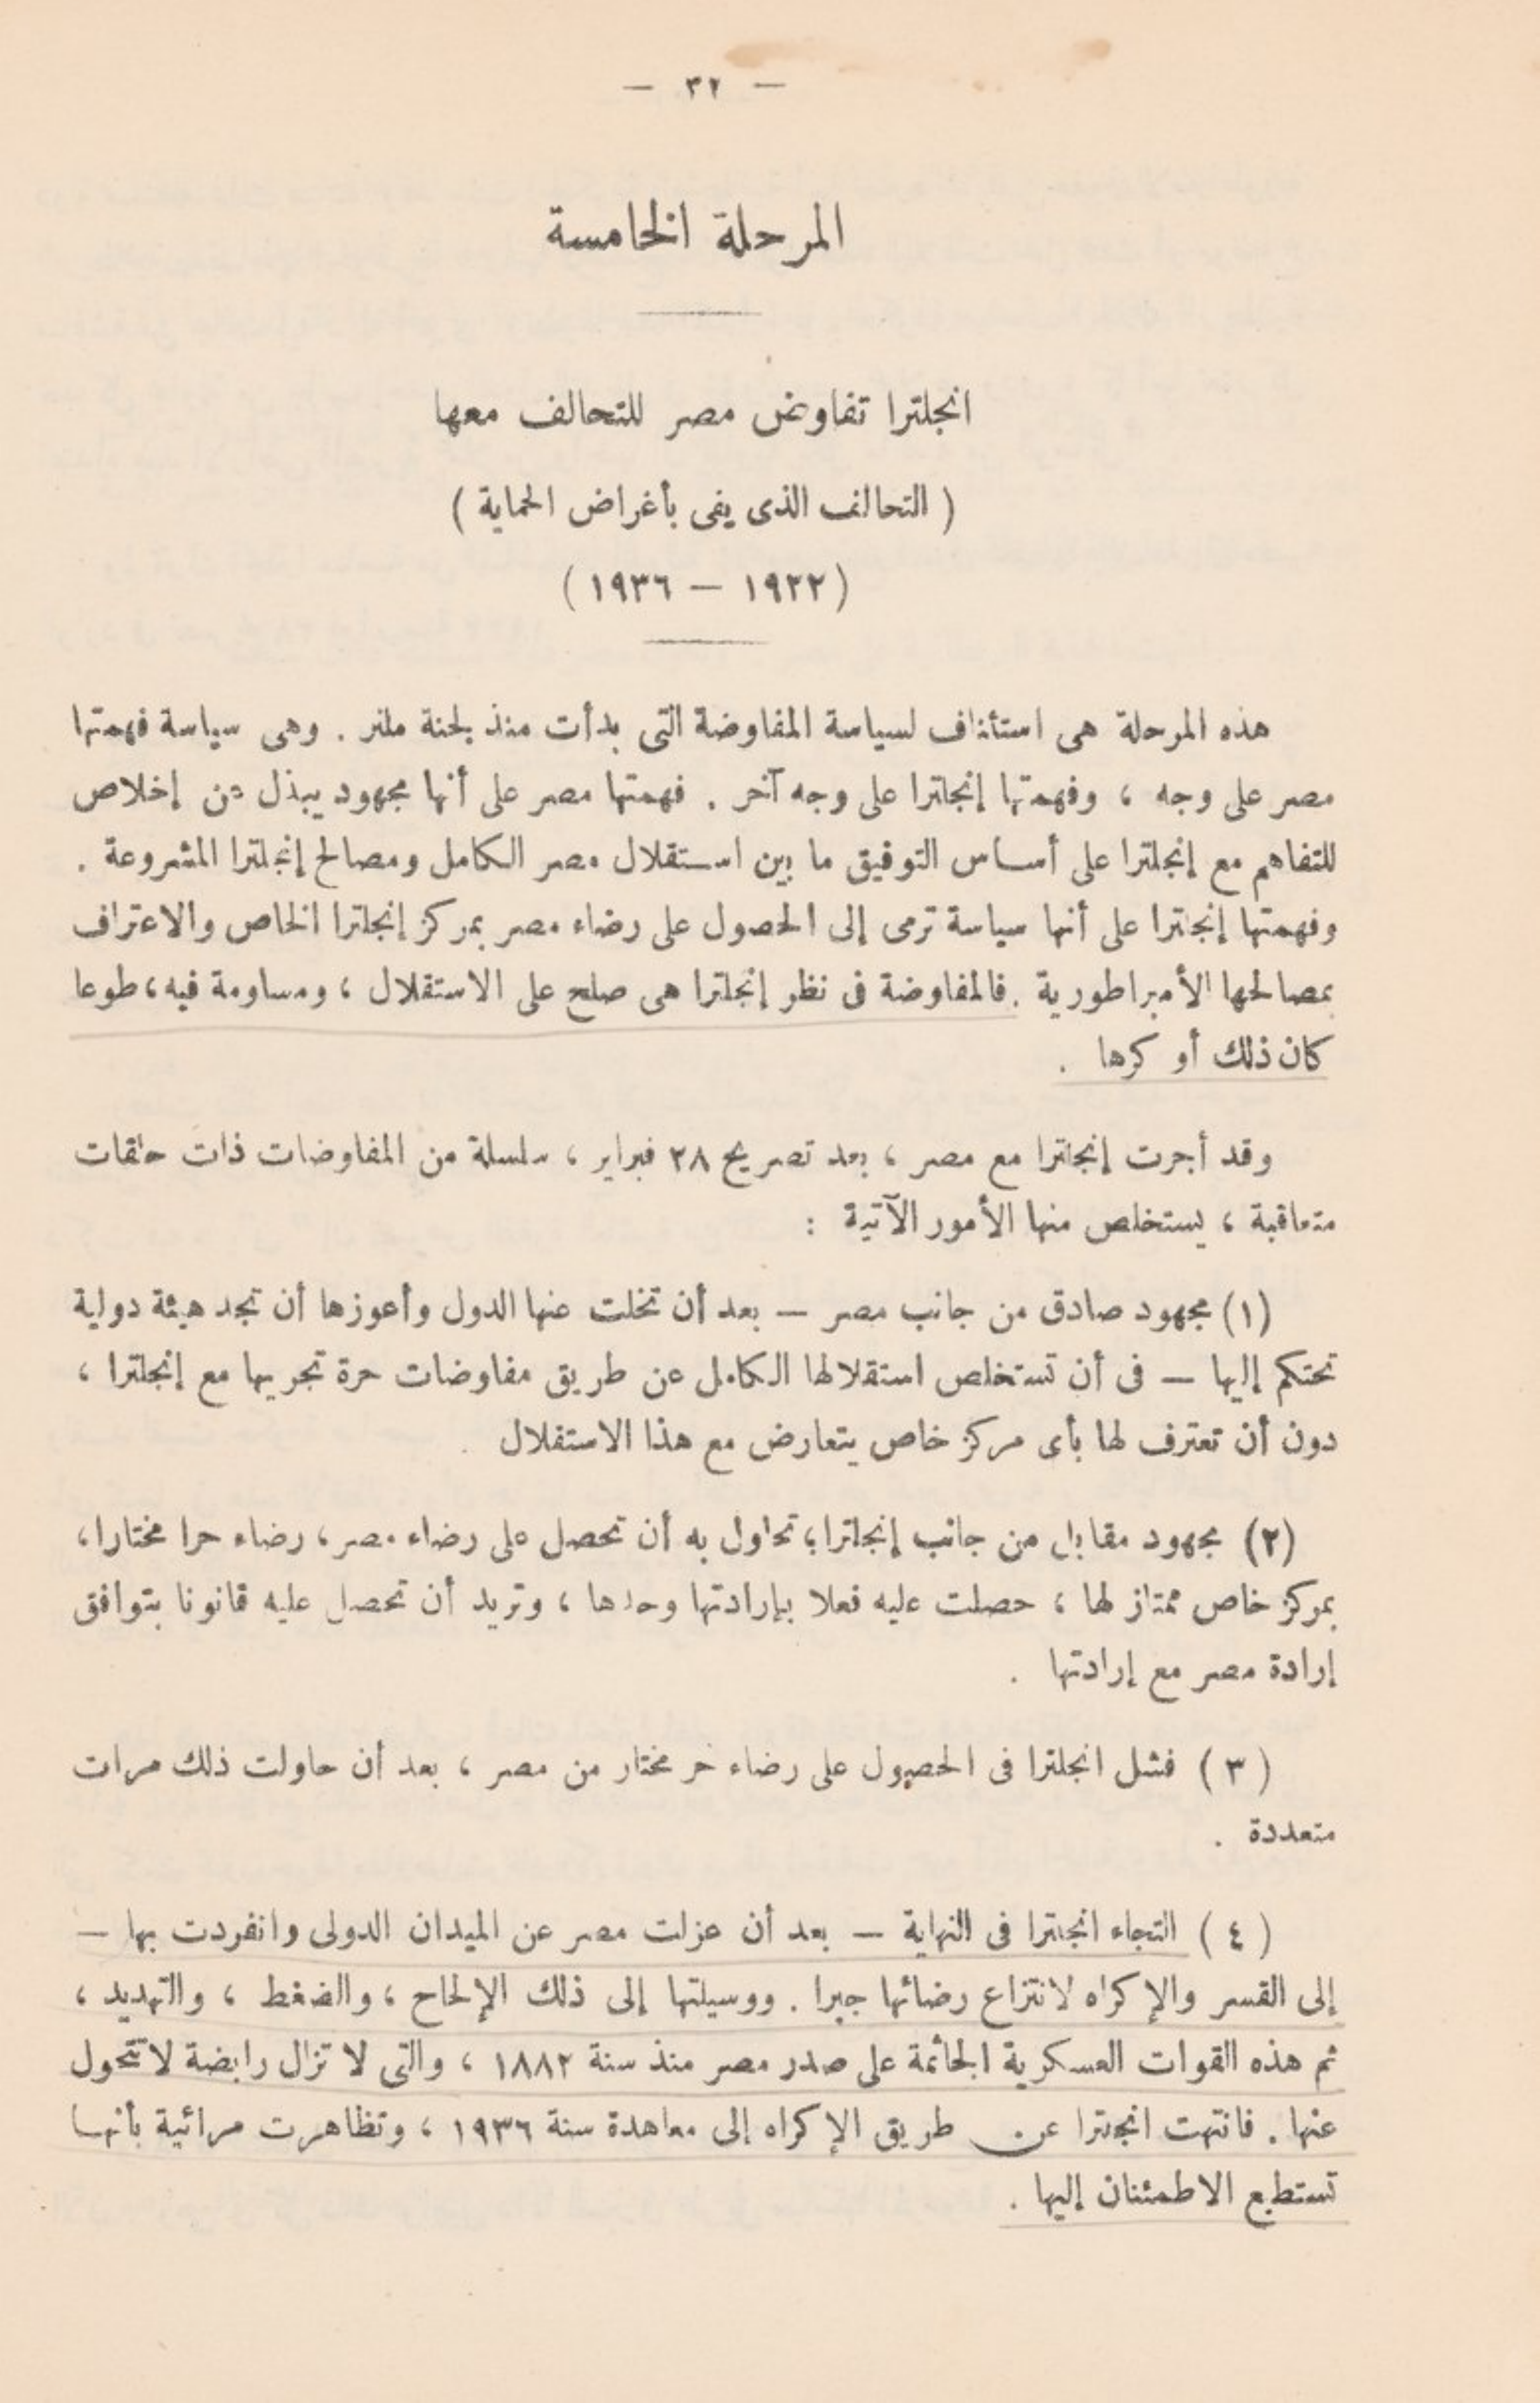 — ٣٢ —
المرحلة الخامسة
انجلترا تفاوض مصر للتحالف معها
( التحالف الذى يفى بأغراض الحماية )
( ١٩٢٢ — ١٩٣٦ )
هذه المرحلة هى استئناف لسياسة المفاوضة التى بدأت منذ لجنة ملنر . وهى سياسة فهمتها
مصر على وجه ، وفهمتها إنجلترا على وجه آخر . فهمتها مصر على أنها مجهود يبذل من إخلاص
للتفاهم مع إنجلترا على أساس التوفيق ما بين استقلال مصر الكامل ومصالح إنجلترا المشروعة .
وفهمتها إنجلترا على أنها سياسة ترمى إلى الحصول على رضاء مصر بمركز إنجلترا الخاص والاعتراف
بمصالحها الأمبراطورية . فالمفاوضة فى نظر إنجلترا هى صلح على الاستقلال ، ومساومة فيه ، طوعا
كان ذلك أو كرها .
وقد أجرت إنجلترا مع مصر ، بعد تصريح ٢٨ فبراير ، سلسلة من المفاوضات ذات حلقات
متعاقبة ، يستخلص منها الأمور الآتية :
(١) مجهود صادق من جانب مصر — بعد أن تخلت عنها الدول وأعوزها أن تجد هيئة دولية
تحتكم إليها — فى أن تستخلص استقلالها الكامل عن طريق مفاوضات حرة تجريها مع إنجلترا ،
دون أن تعترف لها بأى مركز خاص يتعارض مع هذا الاستقلال .
(٢) مجهود مقابل من جانب إنجلترا ، تحاول به أن تحصل على رضاء مصر ، رضاء حرا مختارا ،
بمركز خاص ممتاز لها ، حصلت عليه فعلا بإرادتها وحدها ، وتريد أن تحصل عليه قانونا بتوافق
إرادة مصر مع إرادتها .
( ٣ ) فشل انجلترا فى الحصول على رضاء حر مختار من مصر ، بعد أن حاولت ذلك مرات
متعددة .
( ٤ ) التجاء انجلترا فى النهاية — بعد أن عزلت مصر عن الميدان الدولى وانفردت بها —
إلى القسر والإكراه لانتزاع رضائها جبرا . ووسيلتها إلى ذلك الإلحاح ، والضغط ، والتهديد ،
ثم هذه القوات العسكرية الجاثمة على صدر مصر منذ سنة ١٨٨٢ ، والتى لا تزال رابضة لا تتحول
عنها . فانتهت انجلترا عن طريق الإكراه إلى معاهدة سنة ١٩٣٦ ، وتظاهرت مرائية بأنها
تستطيع الاطمئنان إليها .